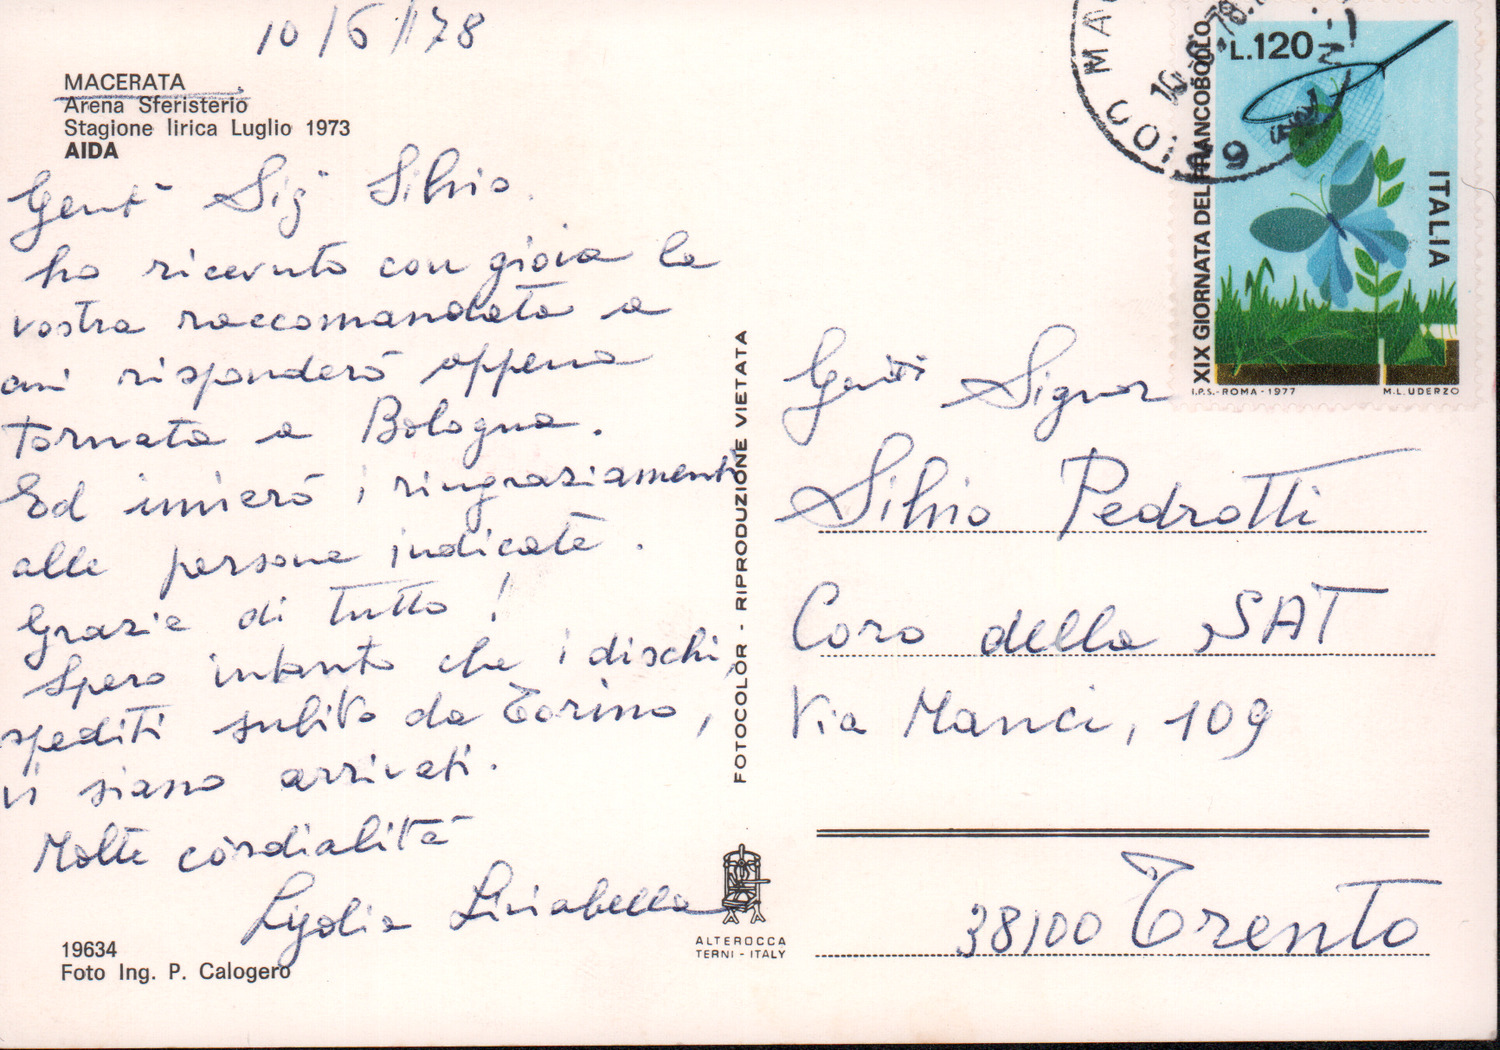 10/6/78
MACERATA
Arena Sferisterio
Stagione lirica Luglio 1973
AIDA
Sig. Silvio
ho ricevuto con gioia la
vostra raccomandata a
cui risponderò appena
tornata a Bologna.
Ed invierò i ringraziamenti
alle persone indicate.
Grazie di tutto!
Spero intanto che i dischi,
spediti subito da Torino,
vi siano arrivati.
Molte cordialità
Lydia
19634
Foto Ing. P. Calogero
FOTOCOLOR - RIPRODUZIONE VIETATA
ALTEROCCA
TERNI - ITALY
L.120
XIX GIORNATA DEL FRANCOBOLLO
ITALIA
I.P.S.-ROMA-1977
M.L.UDERZO
Signor
Silvio Pedrotti
Coro della SAT
Via Manci, 109
38100 Trento